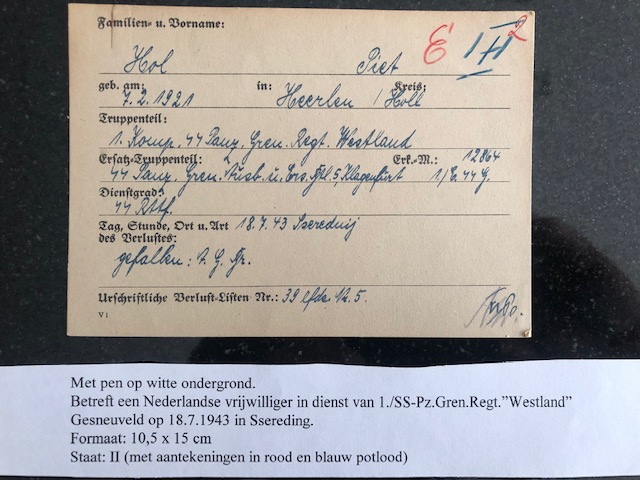 Familien- u. Vorname:
E 1 H 2
Hol Piet
geb. am: in: Kreis:
7.2.1921 Heerlen / Holl
Truppenteil:
1. Komp. 44 Panz. Gren. Regt. Westland
Ersatz-Truppenteil: Erk.-M.: 12864
44 Panz. Gren. Ausb. u. Ers. Btl. 5, Klagenfurt 1/E. 44 G.
Dienstgrad:
44 Rttf.
Tag, Stunde, Ort u. Art 18.7.43 Ssereduij
des Verlustes:
gefallen:
Urschriftliche Verlust-Listen Nr.: 39 lfde. Nr. 5.
V 1
Met pen op witte ondergrond.
Betreft een Nederlandse vrijwilliger in dienst van 1./SS-Pz.Gren.Regt."Westland"
Gesneuveld op 18.7.1943 in Ssereding.
Formaat: 10,5 x 15 cm
Staat: II (met aantekeningen in rood en blauw potlood)